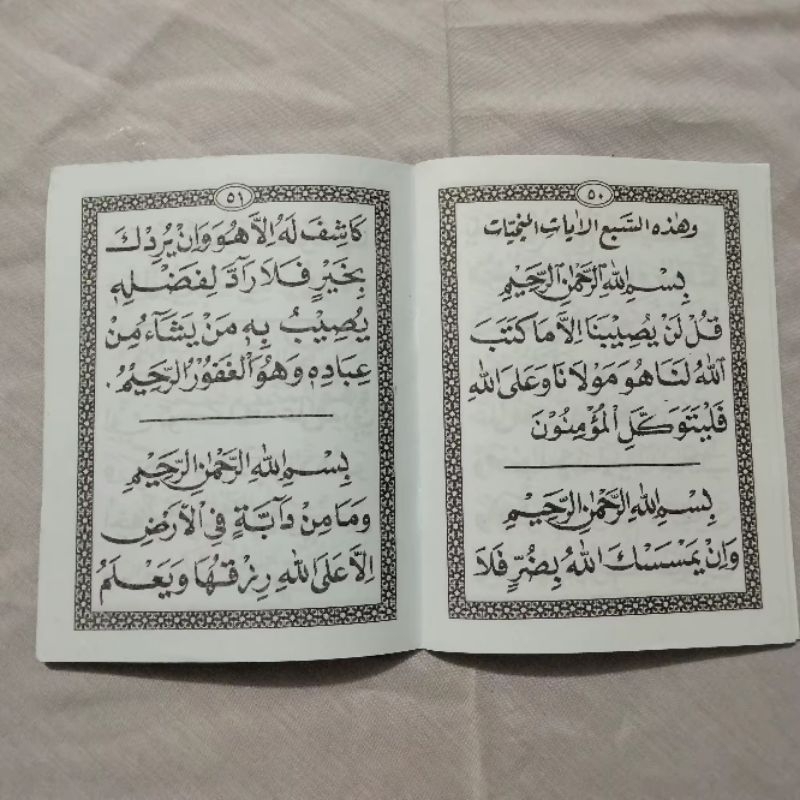 ٥٠
وهٰذه السَّبع الاٰيات المنجيات
بِسْمِ اللهِ الرَّحْمٰنِ الرَّحِيْمِ
قُلْ لَنْ يُصِيْبَنَا اِلَّا مَا كَتَبَ
اللهُ لَنَا هُوَ مَوْلَانَا وَعَلَى اللهِ
فَلْيَتَوَكَّلِ الْمُؤْمِنُوْنَ
بِسْمِ اللهِ الرَّحْمٰنِ الرَّحِيْمِ
وَاِنْ يَمْسَسْكَ اللهُ بِضُرٍّ فَلَا
٥١
كَاشِفَ لَهُ اِلَّا هُوَ وَاِنْ يُرِدْكَ
بِخَيْرٍ فَلَا رَآدَّ لِفَضْلِهٖ
يُصِيْبُ بِهٖ مَنْ يَشَآءُ مِنْ
عِبَادِهٖ وَهُوَ الْغَفُوْرُ الرَّحِيْمُ.
بِسْمِ اللهِ الرَّحْمٰنِ الرَّحِيْمِ
وَمَا مِنْ دَآبَّةٍ فِي الْاَرْضِ
اِلَّا عَلَى اللهِ رِزْقُهَا وَيَعْلَمُ